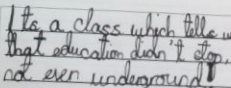 Its a class which tells
that education didn't stop,
not even underground